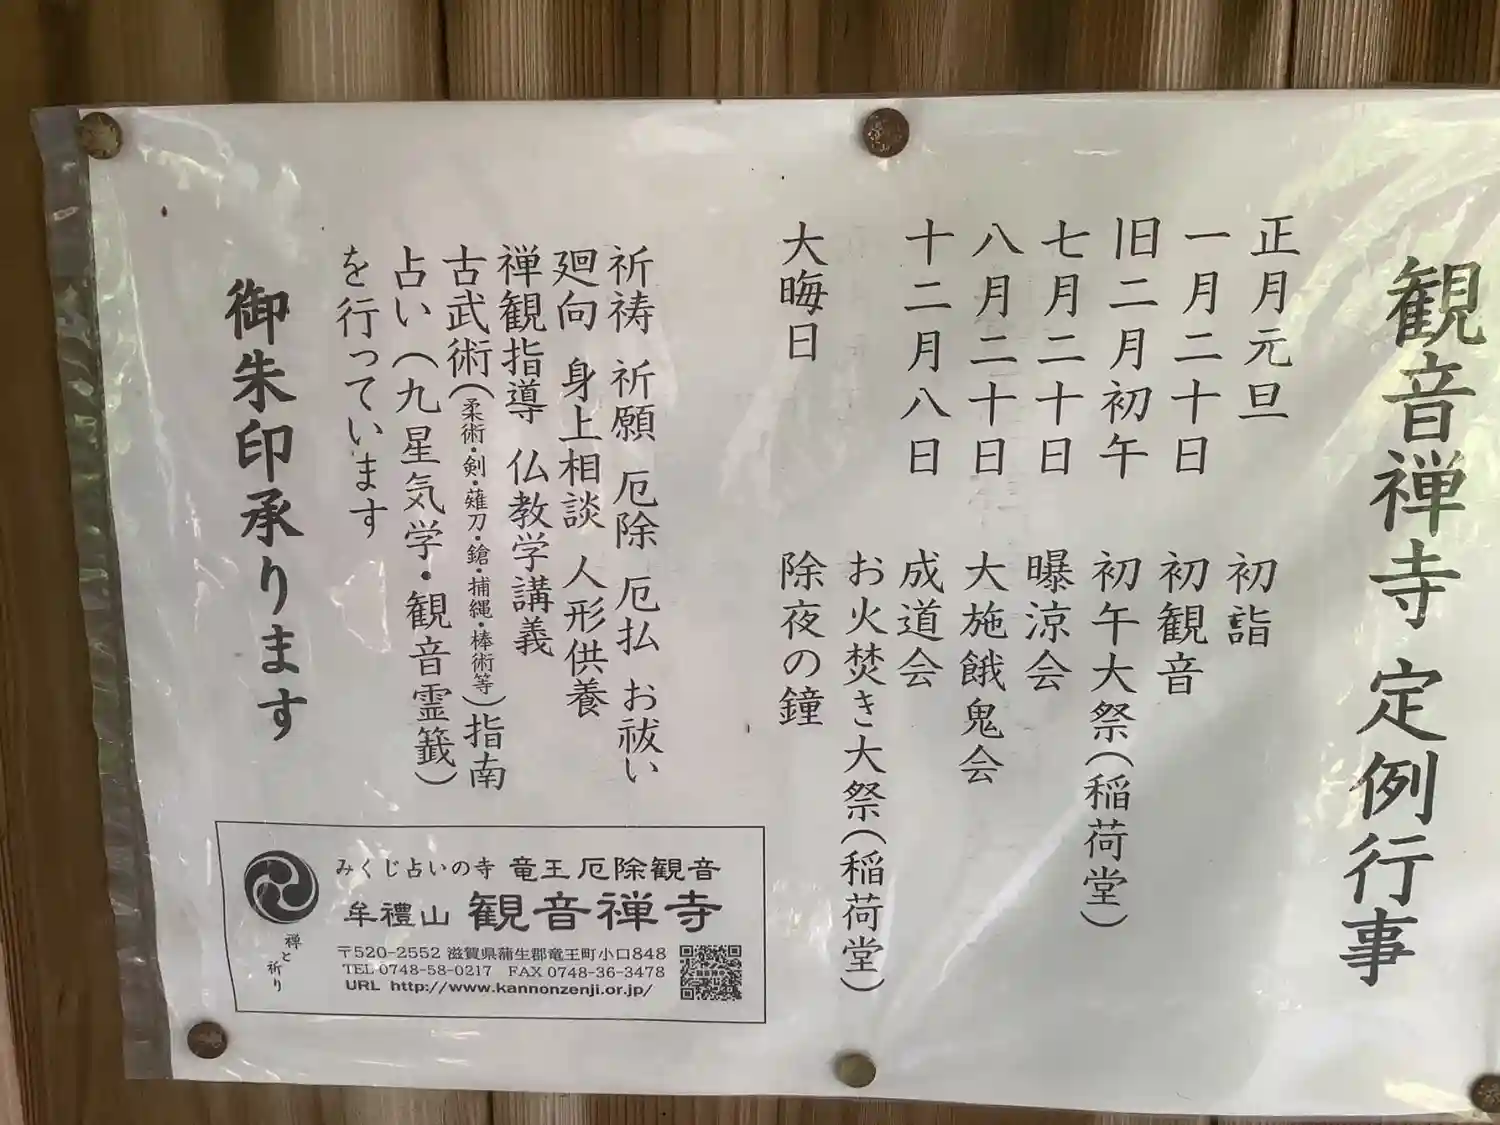 観音禅寺 定例行事
正月元旦 初詣
一月二十日 初観音
旧二月初午 初午大祭（稲荷堂）
七月二十日 曝涼会
八月二十日 大施餓鬼会
十二月八日 成道会
お火焚き大祭（稲荷堂）
大晦日 除夜の鐘
祈祷 祈願 厄除 厄払 お祓い
廻向 身上相談 人形供養
禅観指導 仏教学講義
古武術（柔術・剣・薙刀・鎗・捕縄・棒術等）指南
占い（九星気学・観音霊籤）
を行っています
御朱印承ります
みくじ占いの寺 竜王厄除観音
牟禮山 観音禅寺
〒520-2552 滋賀県蒲生郡竜王町小口848
TEL 0748-58-0217 FAX 0748-36-3478
URL http://www.kannonzenji.or.jp/
禅と祈り